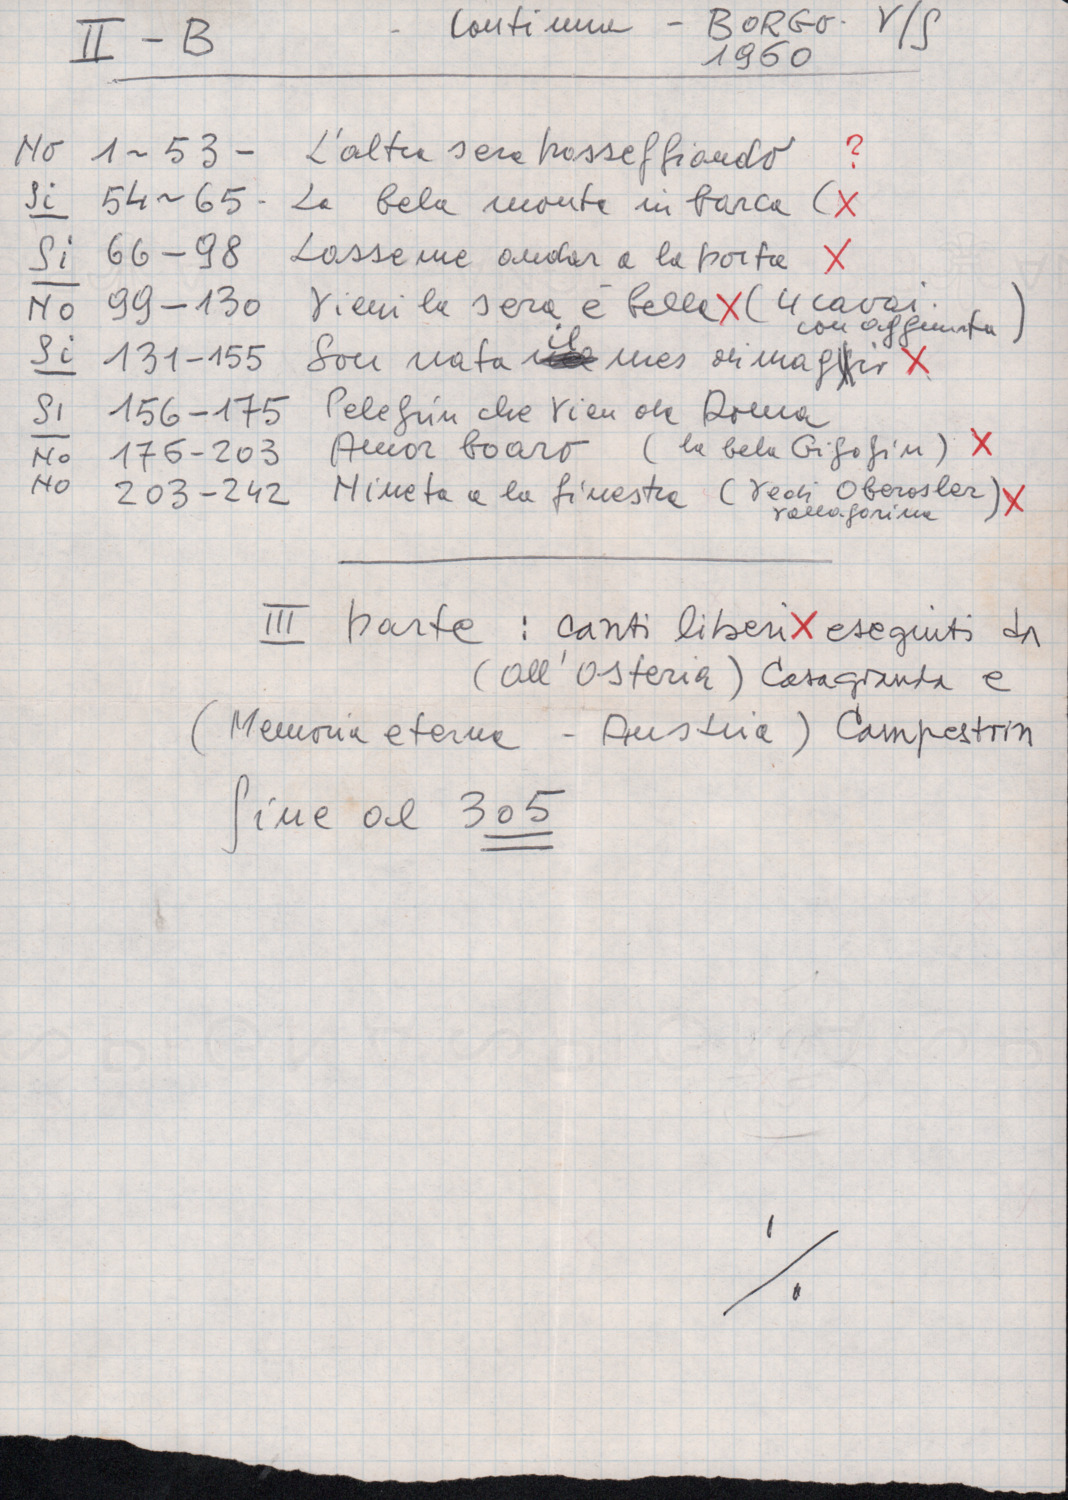 II - B - Continua - BORGO. V/S
1960
No 1 ~ 53 - L'altra sera passeggiando ?
Si 54 ~ 65 - La bela monta in barca ( X
Si 66 - 98 Lasseme andar a la porta X
No 99 - 130 Vieni la sera è bella X ( 4 cavai.
con aggiunta )
Si 131 - 155 Son nata il mes di magio X
Si 156 - 175 Pelegrin che vien da Roma
No 176 - 203 Amor boaro ( la bela Gigogin ) X
No 203 - 242 Nineta a la finestra ( vedi Oberosler ) X
valsugarina
III parte : canti liberi X eseguiti da
( all'Osteria ) Casagranda e
( Memoria eterna - Austria ) Campestrin
fine al 305